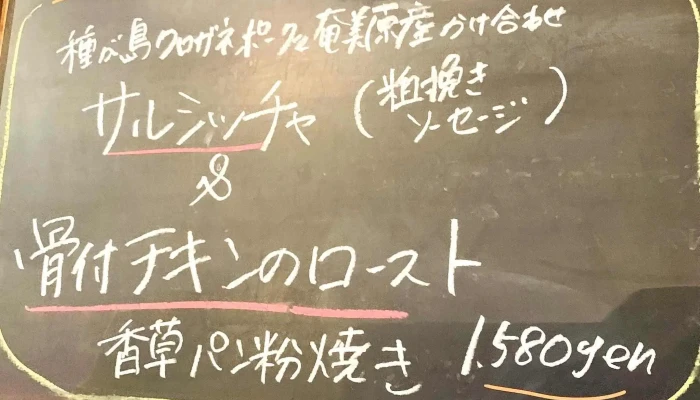 種が島クロガネポークと奄美原産かけ合わせ
サルシッチャ(粗挽きソーセージ)
&
骨付チキンのロースト
香草パン粉焼き 1.580yen